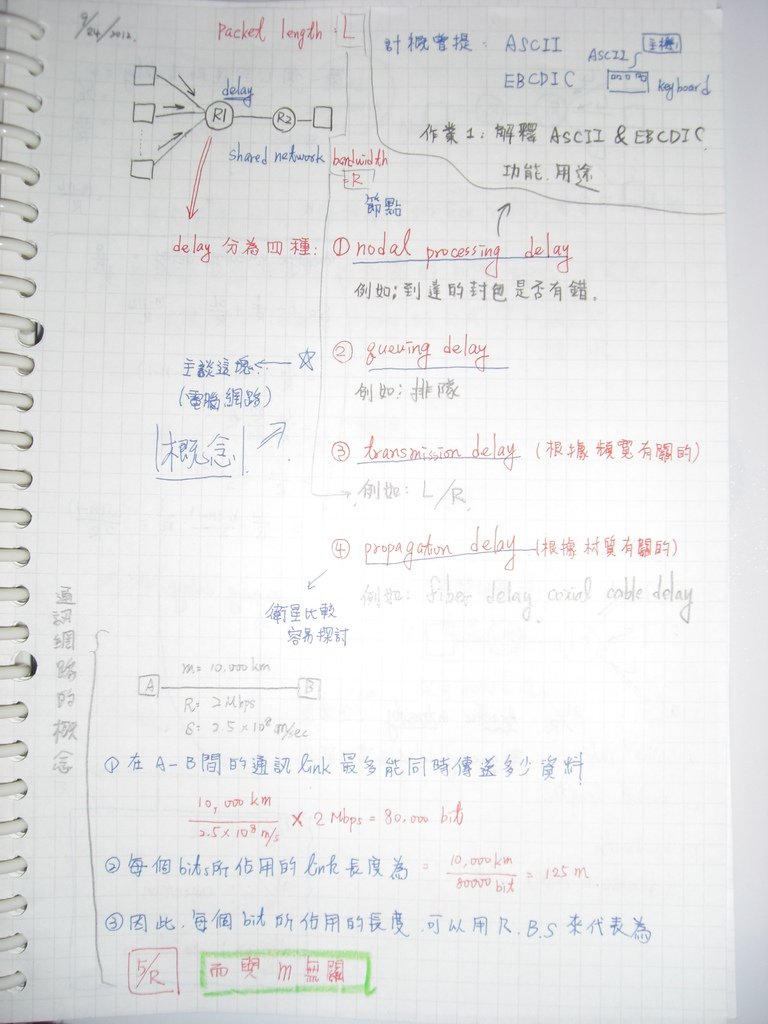 9/24/2012.
Packet length: L
計概會提: ASCII
EBCDIC
ASCII
主機
keyboard
作業1: 解釋 ASCII & EBCDIC
功能.用途
delay
R1
R2
shared network bandwidth
=R
節點
delay 分為四種: ① nodal processing delay
例如; 到達的封包是否有錯.
② queuing delay
例如: 排隊
主談這塊:
(電腦網路)
概念
③ transmission delay (根據頻寬有關的)
例如: L/R
④ propagation delay (根據材質有關的)
例如: fiber delay coxial cable delay
衛星比較
容易探討
通訊網路的概念
m= 10,000 km
A
B
R= 2 Mbps
S= 2.5 × 10⁸ m/sec
① 在 A-B間的通訊 link 最多能同時傳送多少資料
10,000 km / 2.5×10⁸ m/s × 2 Mbps = 80,000 bit
② 每個bits所佔用的 link 長度為 = 10,000km / 80000 bit = 125 m
③ 因此.每個 bit 所佔用的長度.可以用R.B.S來代表為
S/R
而與 m 無關